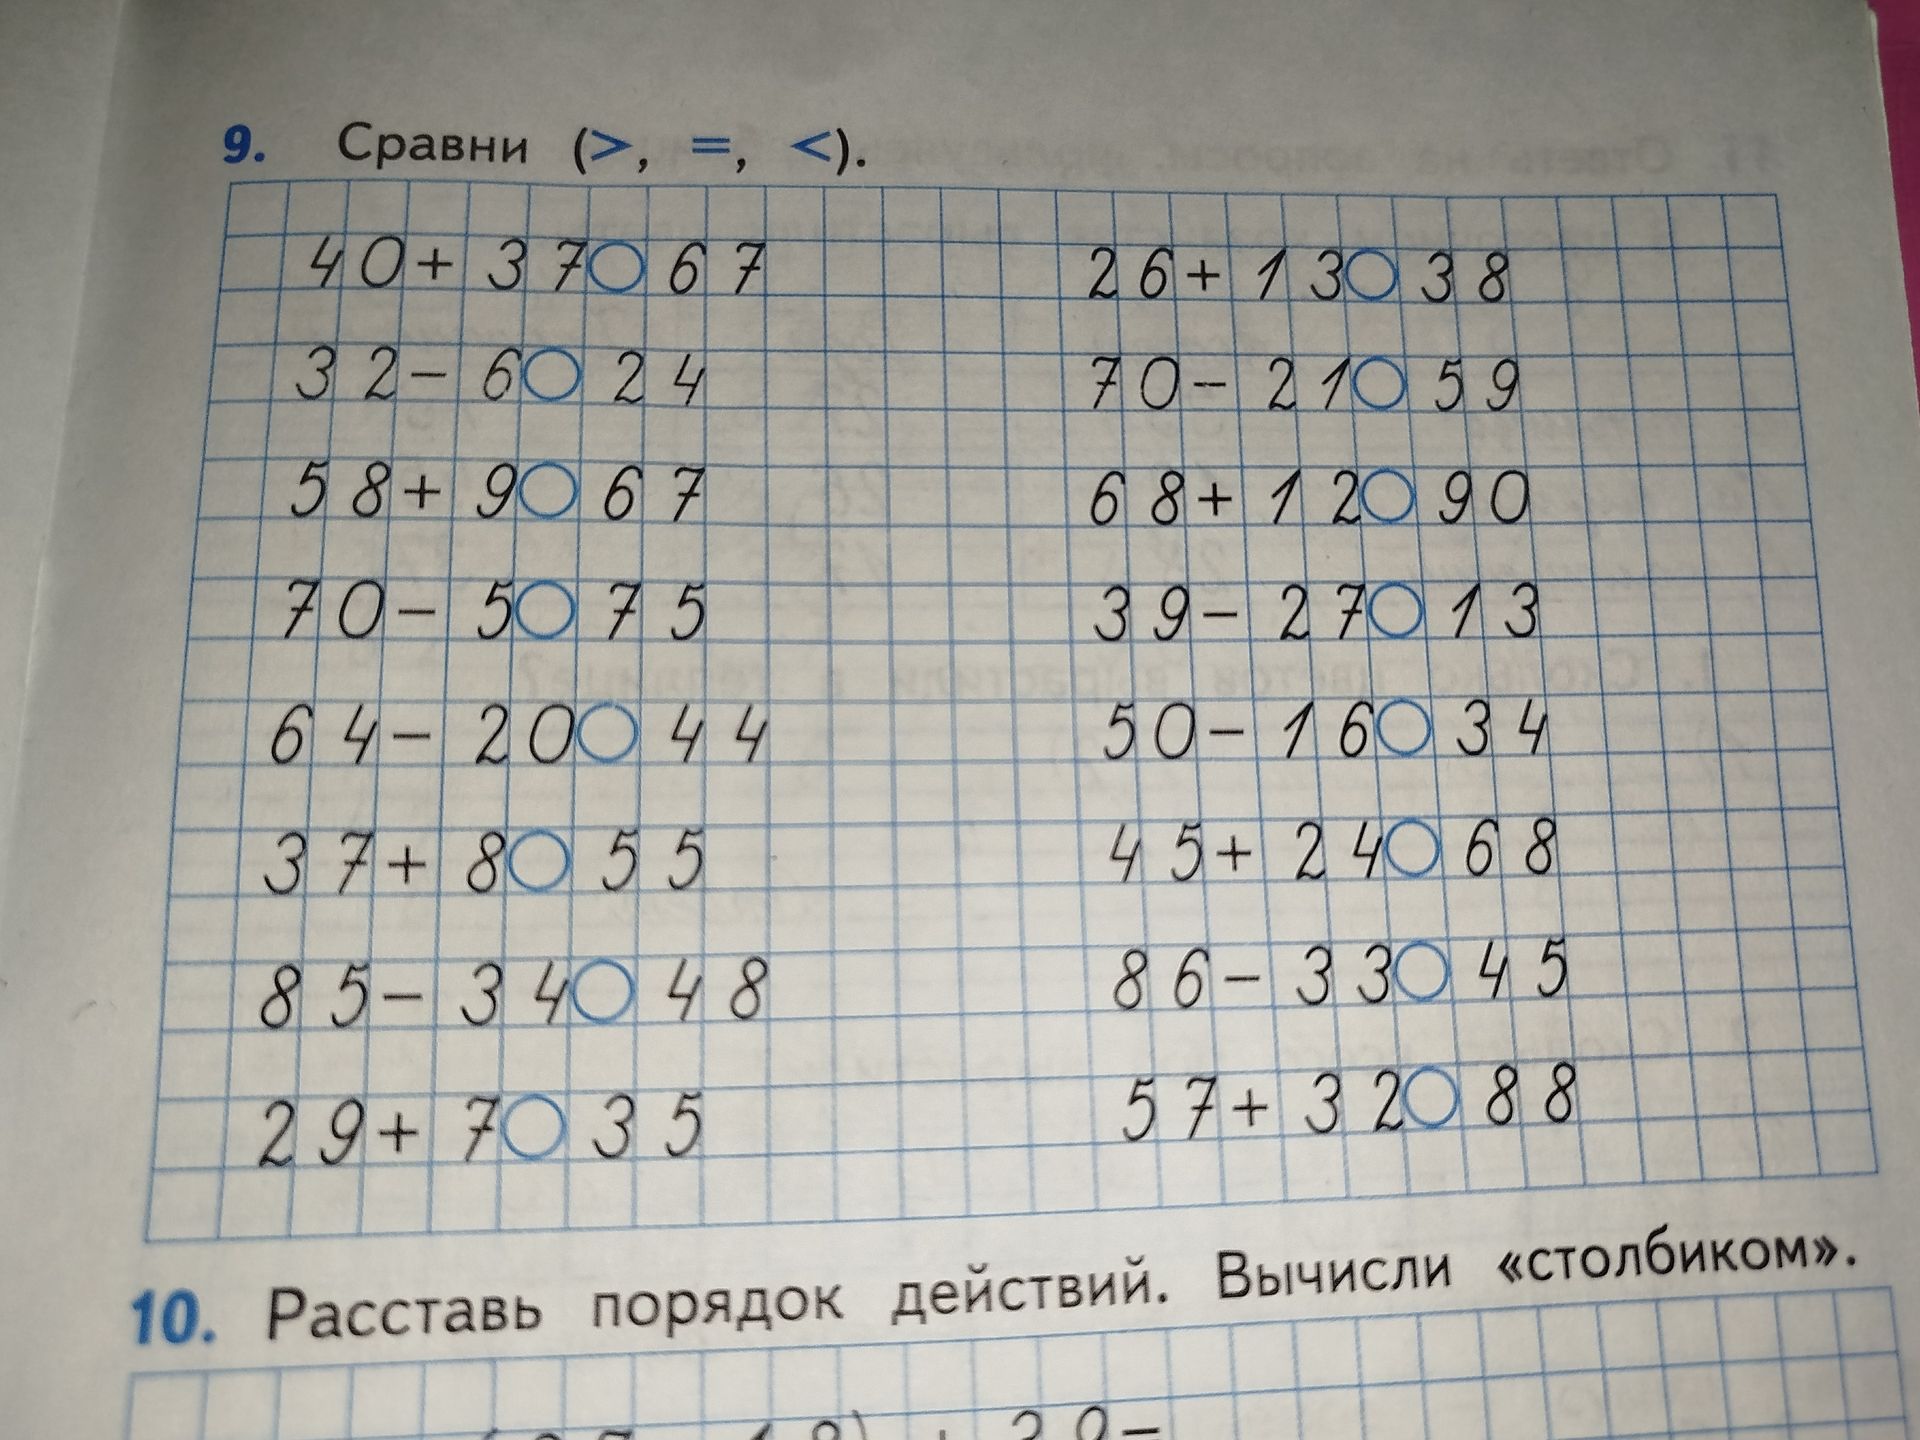 9. Сравни (>, =, <).
40+37○67 26+13○38
32-6○24 70-21○59
58+9○67 68+12○90
70-5○75 39-27○13
64-20○44 50-16○34
37+8○55 45+24○68
85-34○48 86-33○45
29+7○35 57+32○88
10. Расставь порядок действий. Вычисли «столбиком».